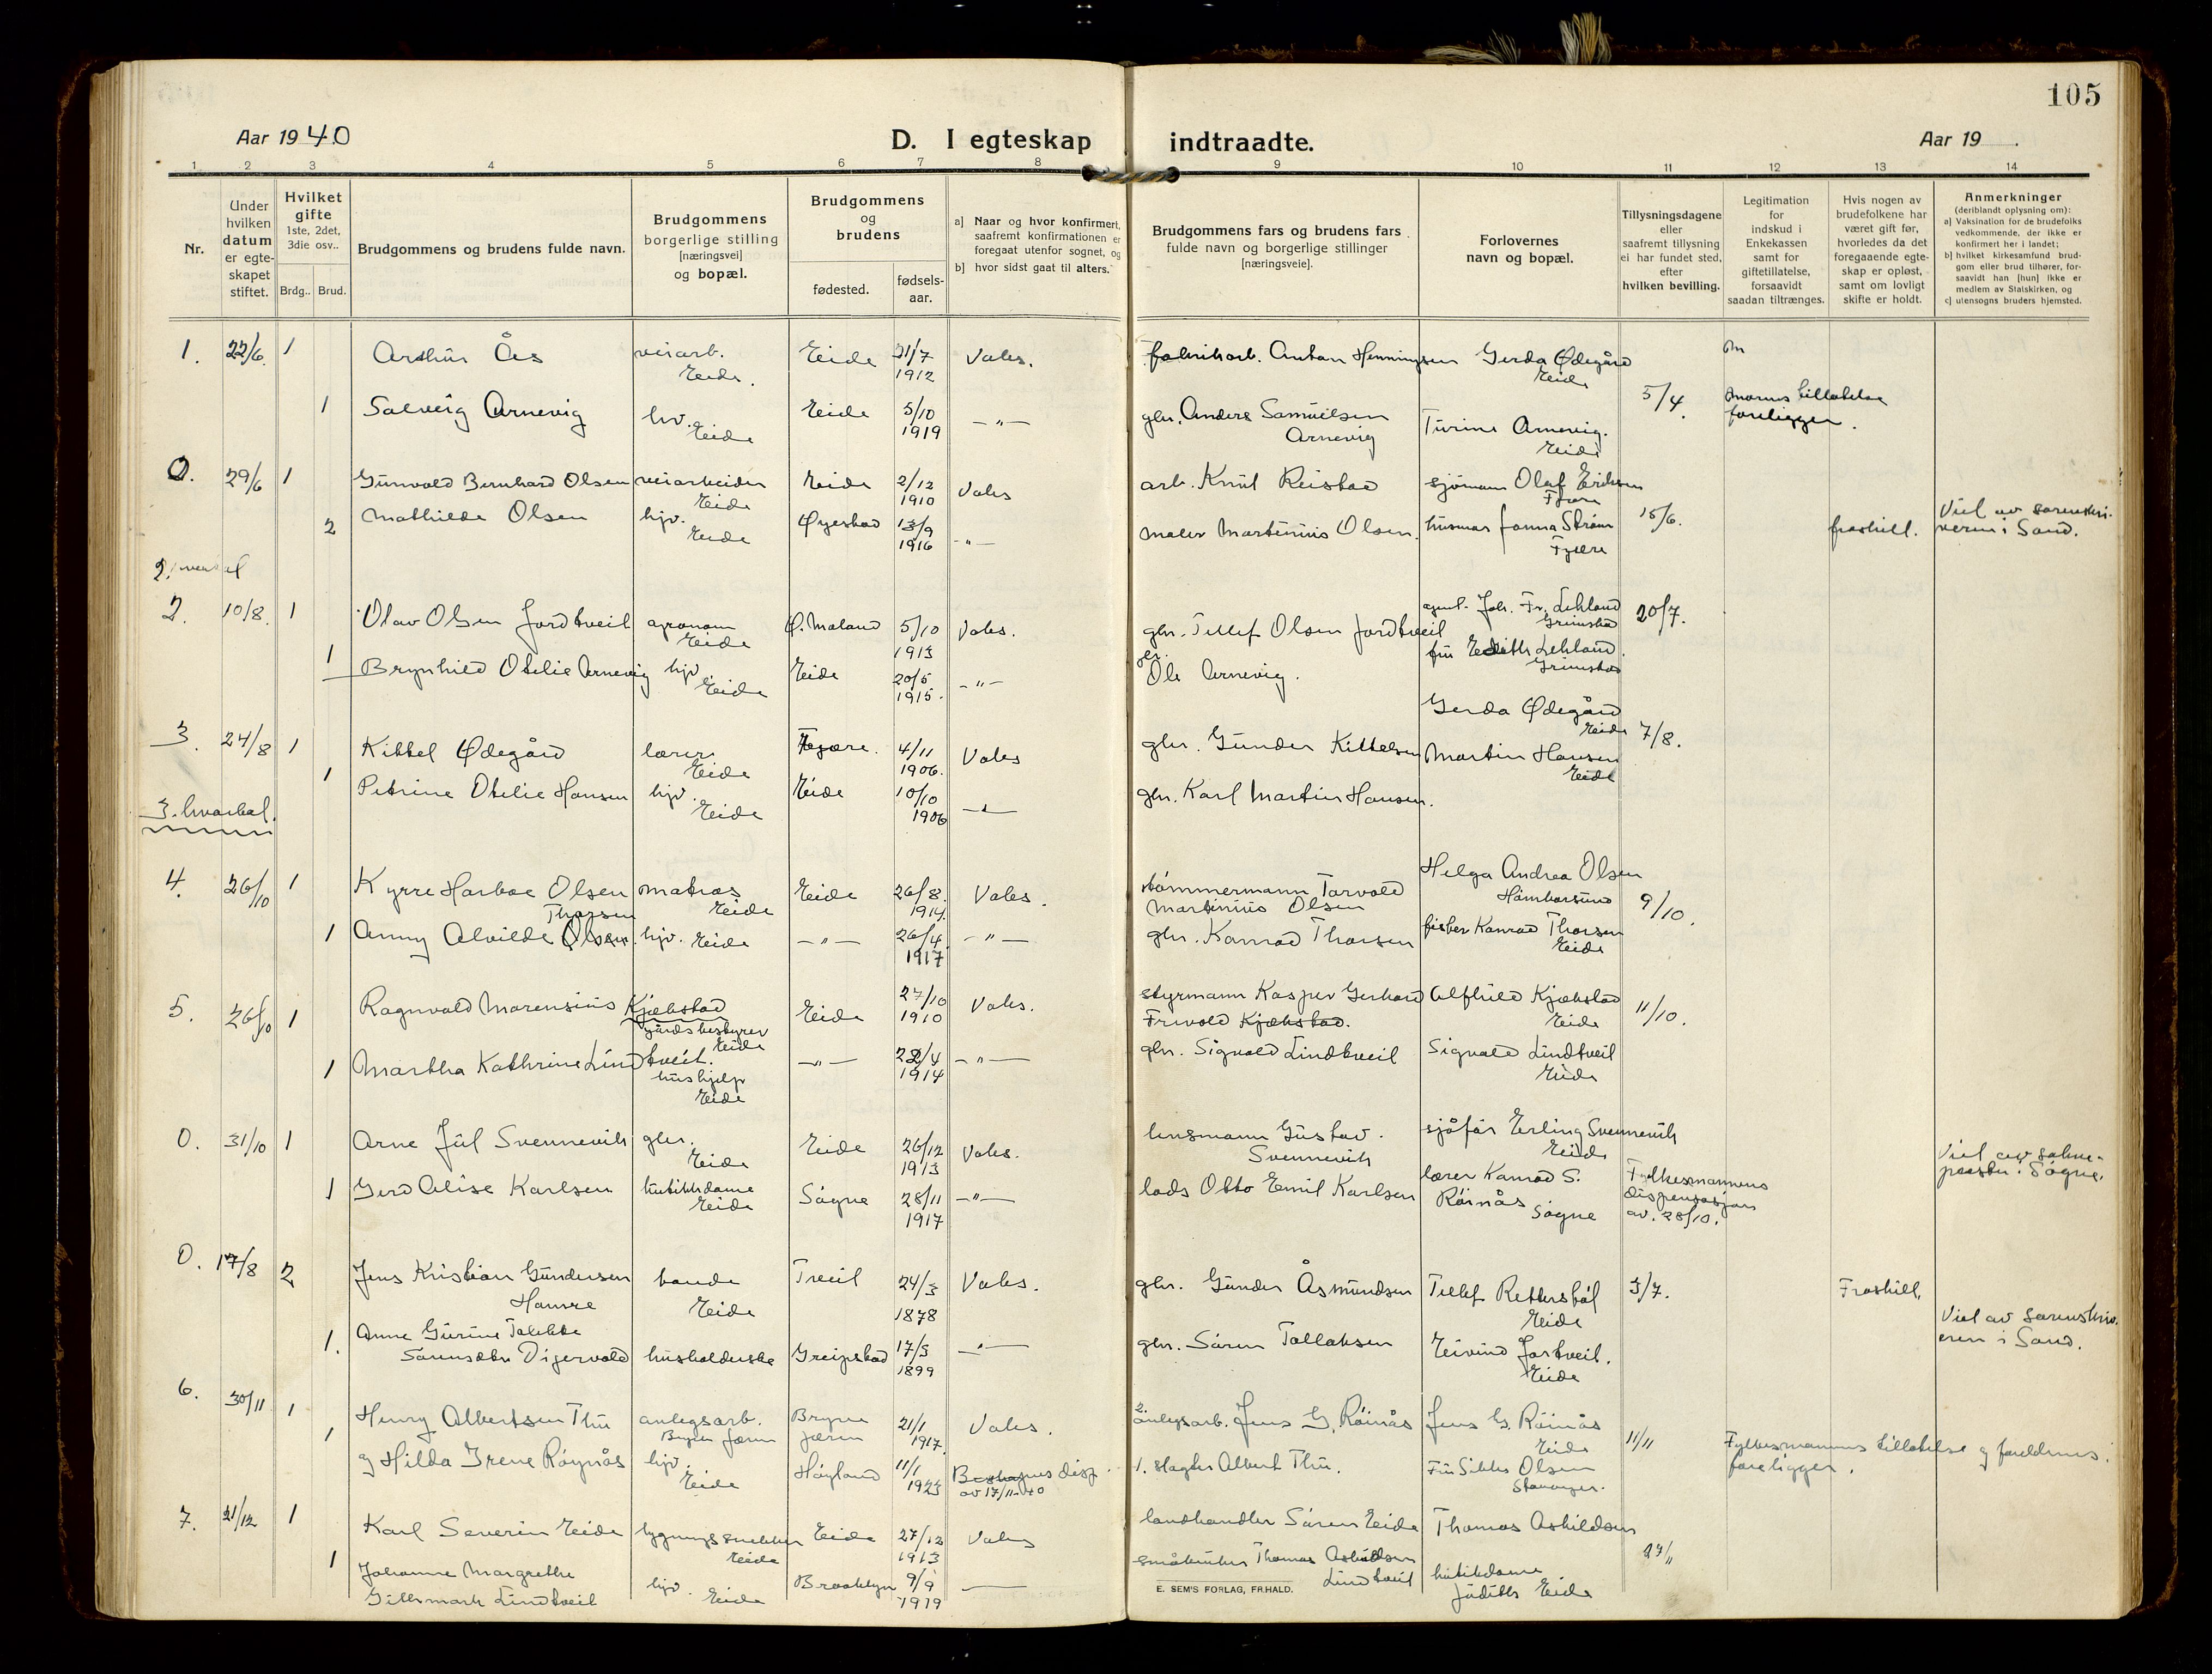 105
Aar 1940
D. I egteskap indtraadte.
Aar 19
1. 2 3 4 5 6 7 8 9 10 11 12 13 14
Nr.
Under hvilken datum er egteskapet stiftet.
Hvilket gifte 1ste, 2det, 3die osv..
Brdg.. Brud.
Brudgommens og brudens fulde navn.
Brudgommens borgerlige stilling [næringsvei] og bopæl.
Brudgommens og brudens
fødested.
fødsels-aar.
a] Naar og hvor konfirmert, saafremt konfirmationen er foregaat utenfor sognet, og
b] hvor sidst gaat til alters.
Brudgommens fars og brudens fars fulde navn og borgerlige stillinger [næringsveie].
Forlovernes navn og bopæl.
Tillysningsdagene eller saafremt tillysning ei har fundet sted, efter hvilken bevilling.
Legitimation for indskud i Enkekassen samt for giftetillatelse, forsaavidt saadan tiltrænges.
Hvis nogen av brudefolkene har været gift før, hvorledes da det foregaaende egteskap er opløst, samt om lovligt skifte er holdt.
Anmerkninger (deriblandt oplysning om): a) Vaksination for de brudefolks vedkommende, der ikke er konfirmert her i landet; b] hvilket kirkesamfund brudgom eller brud tilhører, forsaavidt han [hun] ikke er medlem av Statskirken, og c] utensogns bruders hjemsted.
1. 22/6. 1 Arthur Ås veiarb. Eide. Eide 31/7 1912 Vales. fabrikarb. Anton Henningsen Gerda Ødegård Eide
1 Solveig Arnevig hv. Eide Eide 5/10 1919 -"- gbr. Anders Samuelsen Arnevig Turine Arnevig. Eide 5/4. morens tillatelse foreligger.
0. 29/6 1 Gunvald Bernhard Olsen veiarbeider Eide Eide 2/12 1910 Vales arb. Knut Reistad sjömann Olaf Eriksen Fjære
2 Mathilde Olsen hjv. Eide Øyestad 13/9 1916 -"- maler Martinius Olsen. husmor Janna Ström Fjære 15/6. fraskill. Viet av sorenskriveren i Sand.
2. kvartal
2. 10/8. 1 Olav Olsen Jordtveit agronom Eide Ø. Moland 5/10 1913 Vales. gbr. Tellef Olsen Jordtveit agent. Joh. Fr. Lekland Grimstad 20/7.
1 Brynhild Otelie Arnevig hjv. Eide Eide 20/5 1915. -"- gbr. Ole Arnevig. fru Edith Lekland. Grimstad
3. 24/8 1 Kittel Ødegård lærer Eide Fjære. 4/11 1906. Vales gbr. Gunder Kittelsen Gerda Ødegård Eide 7/8.
1 Petrine Otelie Hansen hjv. Eide Eide 10/10 1906 -"- gbr. Karl Martin Hansen. Martin Hansen Eide
3. kvartal.
4. 26/10 1 Kyrre Harboe Olsen matros Eide Eide 26/8. 1914. Vales. tömmermann Torvald Martinius Olsen Helga Andrea Olsen Homborsund 9/10.
1 Anny Alvilde Olsen Thorsen hjv. Eide -"- 26/4 1917 -"- gbr. Konrad Thorsen fisker Konrad Thorsen Eide
5. 26/10 1 Ragnvald Marensius Kjækstad gårdsbestyrer Eide Eide 27/10 1910 Vales. styrmann Kasper Gerhard Frivold Kjækstad. Alfhild Kjækstad Eide 11/10.
1 Martha Kathrine Lindtveit. hushjelp Eide -"- 28/4 1914 -"- gbr. Sigvald Lindtveit Sigvald Lindtveit Eide
0. 31/10 1 Arne Jul Svennevik gbr. Eide Eide 26/12 1913 Vales. lensmann Gustav Svennevik sjåfør Erling Svennevik Eide
1 Gerd Alise Karlsen butikkdame Eide Sögne 28/11 1917 -"- lods Otto Emil Karlsen lærer Konrad S. Röinås Sögne Fylkesmannens dispensasjon av. 28/10. Viet av soknepresten i Sögne.
0. 17/8 2 Jens Kristian Gundersen Hamre bonde Eide Treit 24/3 1878 Vales. gbr. Gunder Åsmundsen Tellef Retterstøl Eide 3/7. Fraskill.
1. Anne Gurine Tolekte Sörensdtr Digervold husholderske Greipstad 17/3 1899 -"- gbr. Sören Tallaksen Eivind Jortveit. Eide Viet av sorenskriveren i Sand.
6. 30/11 1 Henry Albertsen Thu anlegsarb. Bryne Jæren Bryne Jæren 21/1 1917. Vales. 2. anlegsarb. Jens G. Röinås Jens G. Röinås Eide 11/11 Fylkesmannens tillatelse og foreldrenes foreligger.
1 g Hilda Irene Röynås hjv. Eide Höyland 11/1 1923 Biskopens disp. av 17/11-40 1. slagter Albert Thu. Fru Olsen Stavanger.
7. 21/12 1 Karl Severin Eide bygningssnekker Eide Eide 27/12 1913 Vales landhandler Sören Eide Thomas Askildsen 27/11
1 Johanne Margrethe Lindtveit hjv. Eide Brooklyn 9/9 1919 småbruker Thomas Askildsen Lindtveit butikdame Judith Eide
E. SEM'S FORLAG, FR.HALD.